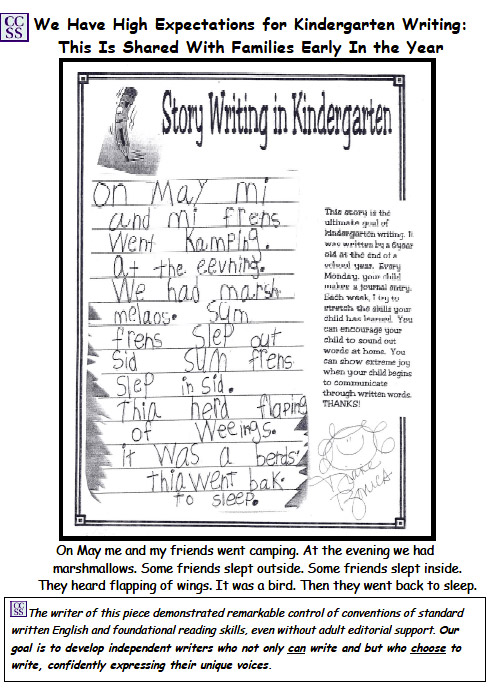 CC
SS
We Have High Expectations for Kindergarten Writing:
This Is Shared With Families Early In the Year
Story Writing in Kindergarten
On May mi
and mi frens
Went Kamping.
at the eevning.
We had marsh
melaos. Sum
frens Slep out
Sid sum frens
Slep in sid.
Thia herd flaping
of Weeings.
it Was a berds.
thia went bak.
to sleep.
This story is the
ultimate goal of
kindergarten writing. It
was written by a 6 year
old at the end of a
school year. Every
Monday, your child
makes a journal entry.
Each week, I try to
stretch the skills your
child has learned. You
can encourage your
child to sound out
words at home. You
can show extreme joy
when your child begins
to communicate
through written words.
THANKS!
On May me and my friends went camping. At the evening we had
marshmallows. Some friends slept outside. Some friends slept inside.
They heard flapping of wings. It was a bird. Then they went back to sleep.
CC
SS
The writer of this piece demonstrated remarkable control of conventions of standard
written English and foundational reading skills, even without adult editorial support. Our
goal is to develop independent writers who not only can write and but who choose to
write, confidently expressing their unique voices.